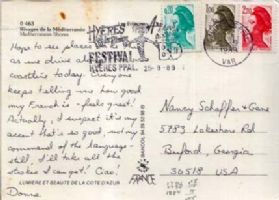 0 463
Rivages de la Méditerranée
Mediterranean Shores
Hope to see places
as we drive
coastline today. Everyone
keeps telling me how good
my French is - feels great!
Actually, I suspect it's my
accent that's so good, not my
command of the language -
still, I'll take all the
strokes I can get! Ciao,
Donna
LUMIÈRE ET BEAUTÉ DE LA CÔTE D'AZUR
HYERES
FESTIVAL
HYERES PPAL.
25-8-89
VAR
0,20
1,00
2,20
FRANCE
Nancy Schaffer & Gene
5783 Lakeshore Rd
Buford, Georgia
30518 USA